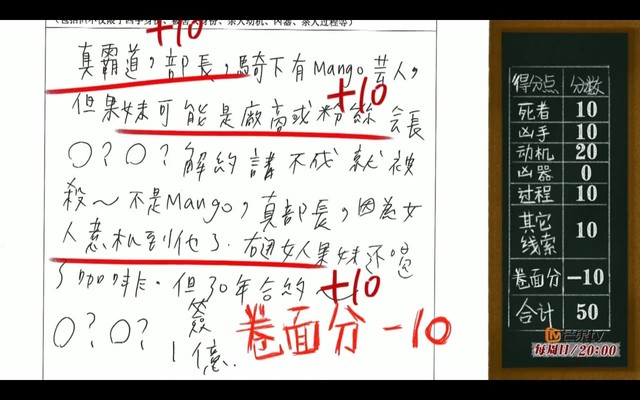 (包括但不仅限于凶手身份、被害人身份、杀人动机、内幕、杀人过程等)
+10
真霸道,部長,騎下有Mango芸人,
+10
但果妹可能是廠商或粉絲会長
〇?〇?解約講不成就被
殺~不是Mango,真部長,因為女
人意机到他了.
女人果妹还喝
了咖啡.但30年合約
+10
〇?〇?簽
1億.
卷面分-10
得分点 分数
死者 10
凶手 10
动机 20
凶器 0
过程 10
其它线索 10
卷面分 -10
合计 50
芒果tv
每周日/20:00